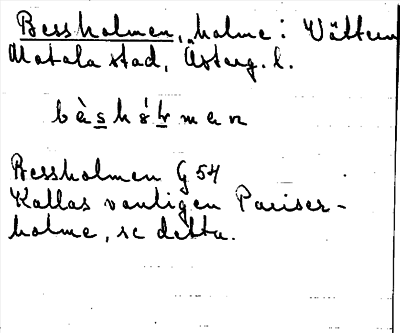 Bessholmen, holme i Vättern
Motala stad, Österg. l.
bèshól̥men
Bessholmen G 54
Kallas vanligen Pariser-
holme, se detta.